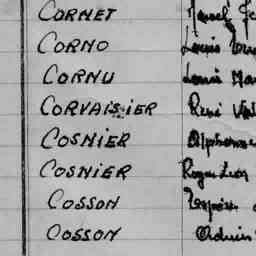 CORNET Marcel
CORNO Louis
CORNU Louis
CORVAISIER René
COSNIER Alphonse
COSNIER Roger Léon
COSSON
COSSON